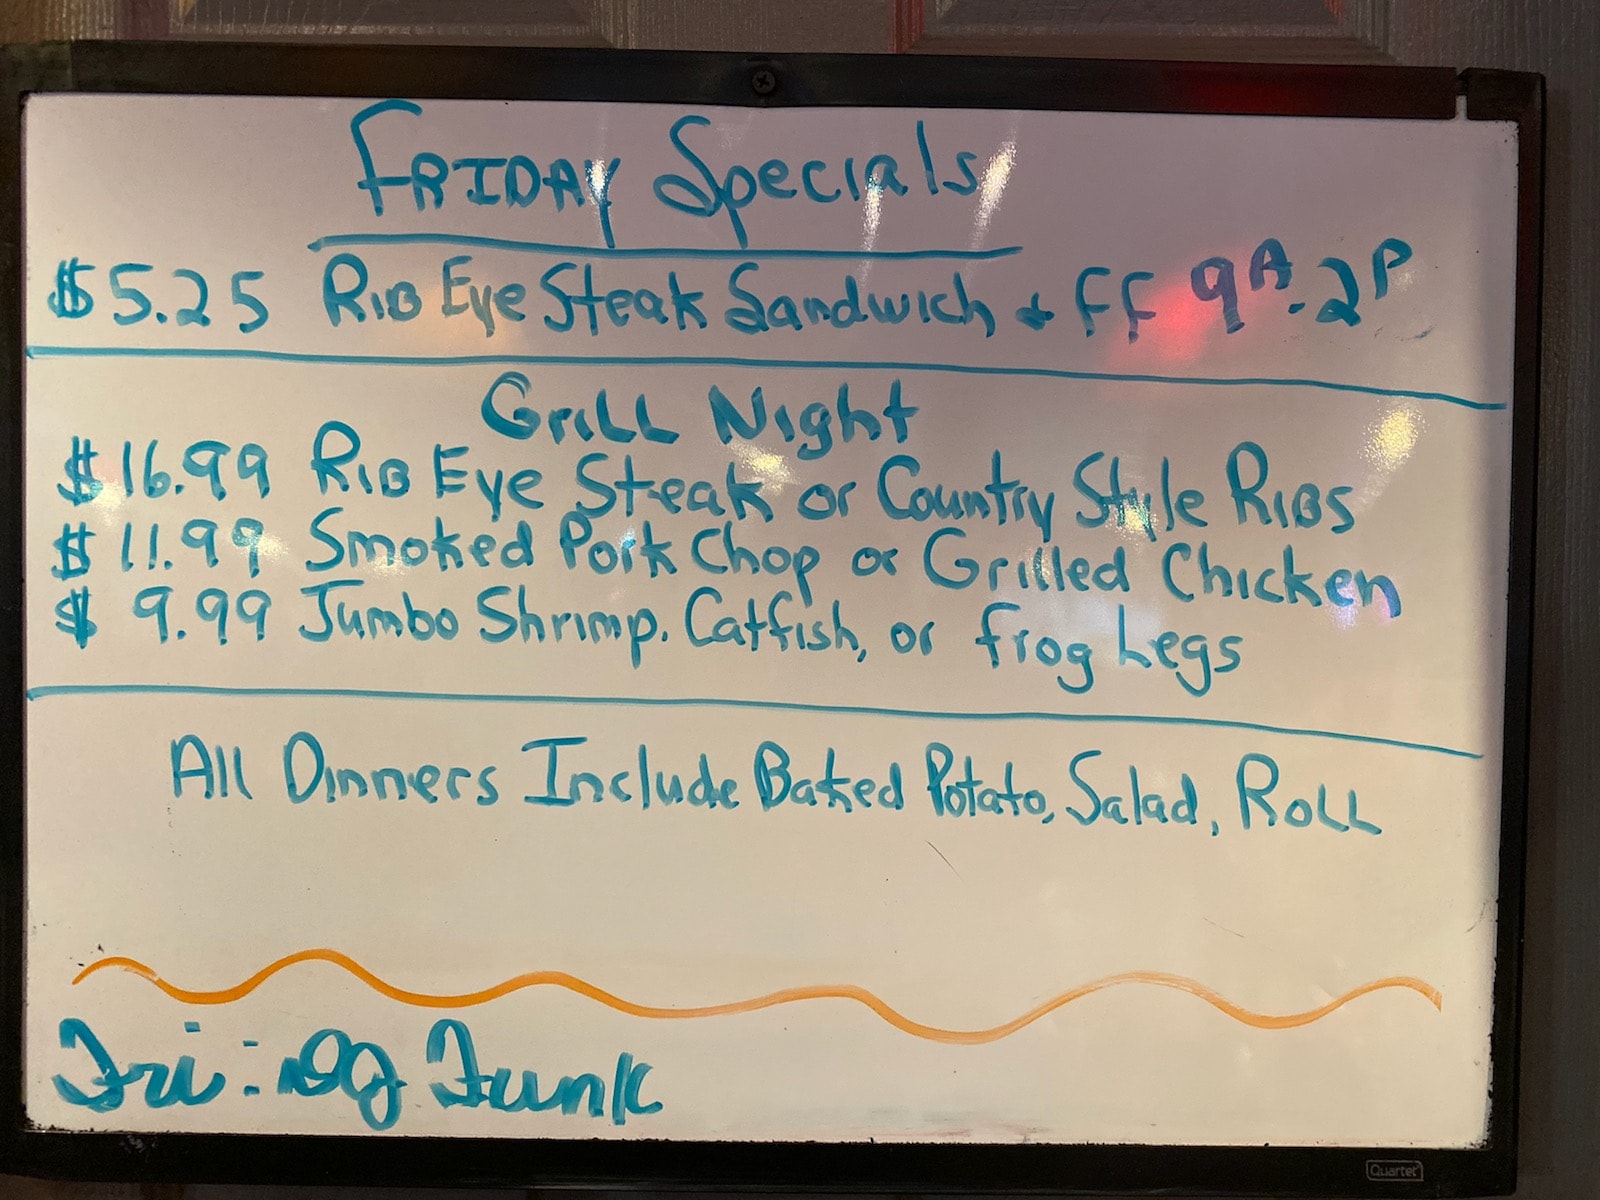 FRIDAY Specials
$5.25 RIB Eye Steak Sandwich & FF 9A-2P
GRILL Night
$16.99 RIB Eye Steak or Country Style RIBS
$11.99 Smoked Pork Chop or Grilled Chicken
$ 9.99 Jumbo Shrimp, Catfish, or frog Legs
All Dinners Include Baked Potato, Salad, ROLL
Fri: DJ Funk
Quartet